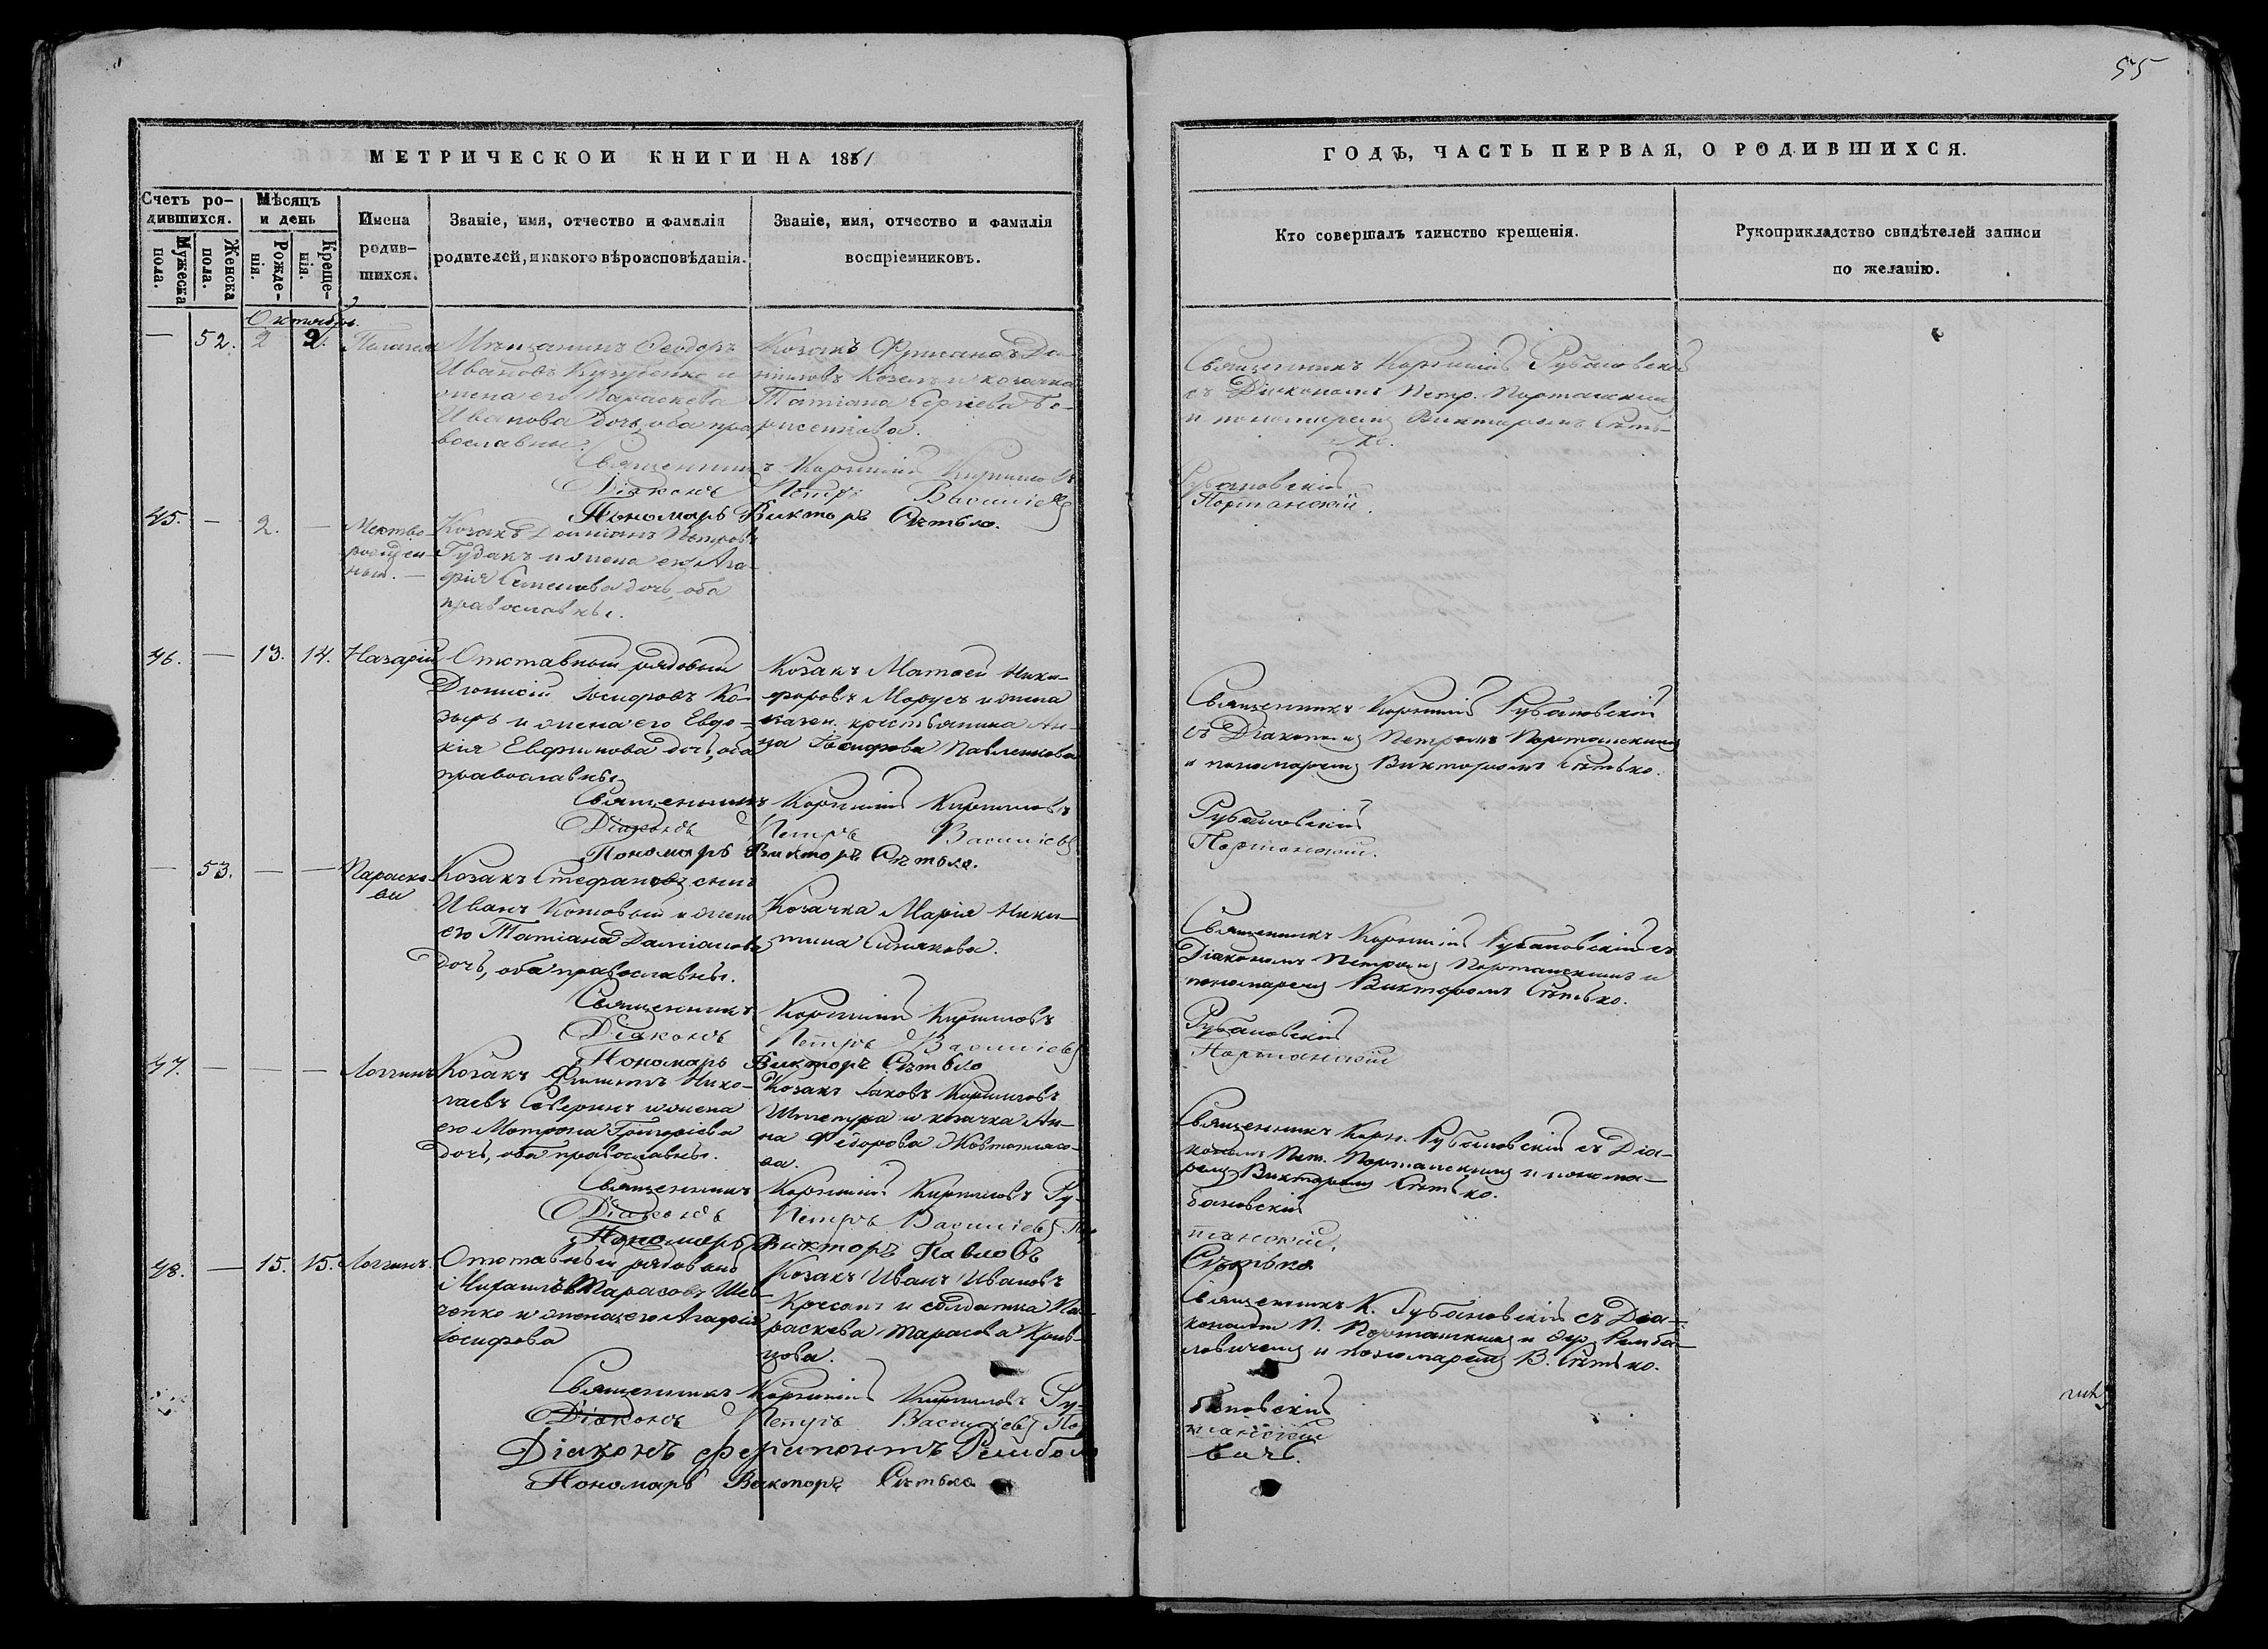 55
МЕТРИЧЕСКОЙ КНИГИ НА 1861
ГОДЪ, ЧАСТЬ ПЕРВАЯ, О РОДИВШИХСЯ.
Счетъ ро-
дившихся.
Мужеска
пола.
Женска
пола.
Мѣсяцъ
и день
Рожде-
нія.
Креще-
нія.
Имена
родив-
шихся.
Званіе, имя, отчество и фамилія
родителей, и какого вѣроисповѣданія.
Званіе, имя, отчество и фамилія
воспріемниковъ.
Кто совершалъ таинство крещенія.
Рукоприкладство свидѣтелей записи
по желанію.
Октябрь.
— 52. 2 2. Пелагея
Мѣщанинъ Ѳеодоръ
Ивановъ и
жена его Параскева
Иванова дочь, оба пра-
вославны.
Козакъ
ніиловъ Козелъ и козачка
Татіана Сергіева
Священникъ Корнилій Рубановскій
съ Діакономъ Петр. Порташскимъ
и пономаремъ Викторомъ Сѣть-
ко.
Священникъ Корнилій Кирилловъ
Рубановскій
Діаконъ Петръ Василіевъ
Порташскій.
Пономарь Викторъ Сѣтько.
45. — 2. — Мертво-
рожден-
ный. —
Козакъ Даміанъ Петровъ
Гудакъ и жена его Ага-
фія дочь, оба
православны.
46. — 13. 14. Назарій
Отставный рядовый
Діонисій Іосифовъ Ко-
зырь и жена его Евдо-
кія дочь, оба
православны.
Козакъ Матѳей Ники-
форовъ Марусъ и жена
казен. крестьянина Ан-
на Іосифова Павленкова
Священникъ Корнилій Рубановскій
съ Діакономъ Петромъ Порташскимъ
и пономаремъ Викторомъ Сѣтько.
Священникъ Корнилій Кирилловъ
Рубановскій
Діаконъ Петръ Василіевъ
Порташскій.
Пономарь Викторъ Сѣтько.
— 53. — — Параске-
ви
Козакъ Стефановъ сынъ
Иванъ Котовый и жена
его Татіана Даміанова
дочь, оба православны.
Козачка Марія Ники-
тина Синякова.
Священникъ Корнилій Рубановскій съ
Діакономъ Петромъ Порташскимъ и
пономаремъ Викторомъ Сѣтько.
Священникъ Корнилій Кирилловъ
Рубановскій
Діаконъ Петръ Василіевъ
Порташскій
Пономарь Викторъ Сѣтько
47. — — — Логгинъ
Козакъ Филиппъ Нико-
лаевъ Северинъ и жена
его Матрона Григоріева
дочь, оба православны.
Козакъ Іаковъ Кирилловъ
и козачка Ан-
на Ѳедорова
ва.
Священникъ Корн. Рубановскій съ Діа-
кономъ Пет. Порташскимъ и понома-
ремъ Викторомъ Сѣтько.
Священникъ Корнилій Кирилловъ Ру-
бановскій
Діаконъ Петръ Василіевъ Пор-
ташскій.
Пономарь Викторъ Павловъ
Сѣтько
48. — 15. 15. Логгинъ.
Отставный рядовый
Михаилъ Тарасовъ Шев-
ченко и жена его Агафія
Іосифова
Козакъ Иванъ Ивановъ
и солдатка Па-
раскева Тарасова Крив-
цова.
Священникъ К. Рубановскій съ Діа-
кономъ П. Порташскимъ и Фер. Рямба-
ловичемъ и пономаремъ В. Сѣтько.
Священникъ Корнилій Кирилловъ Ру-
бановскій
Діаконъ Петръ Василіевъ Пор-
ташскій
Діаконъ Ферапонтъ
вичъ.
Пономарь Викторъ Сѣтько